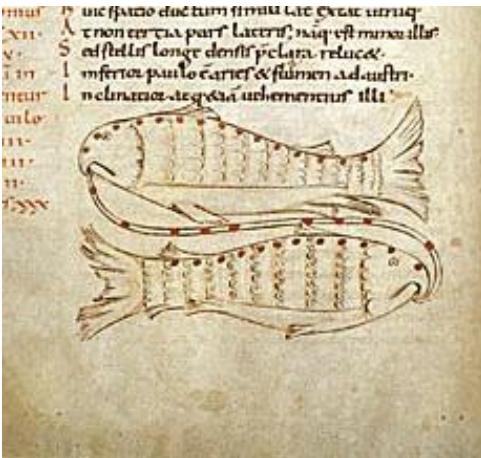 uic spatio ductum simili lat extat utruq
XII. A t non tertia pars lateris, náq; est minor illis
X. S ed stellis longe densis p̄clara reluc&.
I nferior paulo ē aries & flumen ad austri.
I nclinatior atq; uehementius illi
culo
III.
II.
XXX